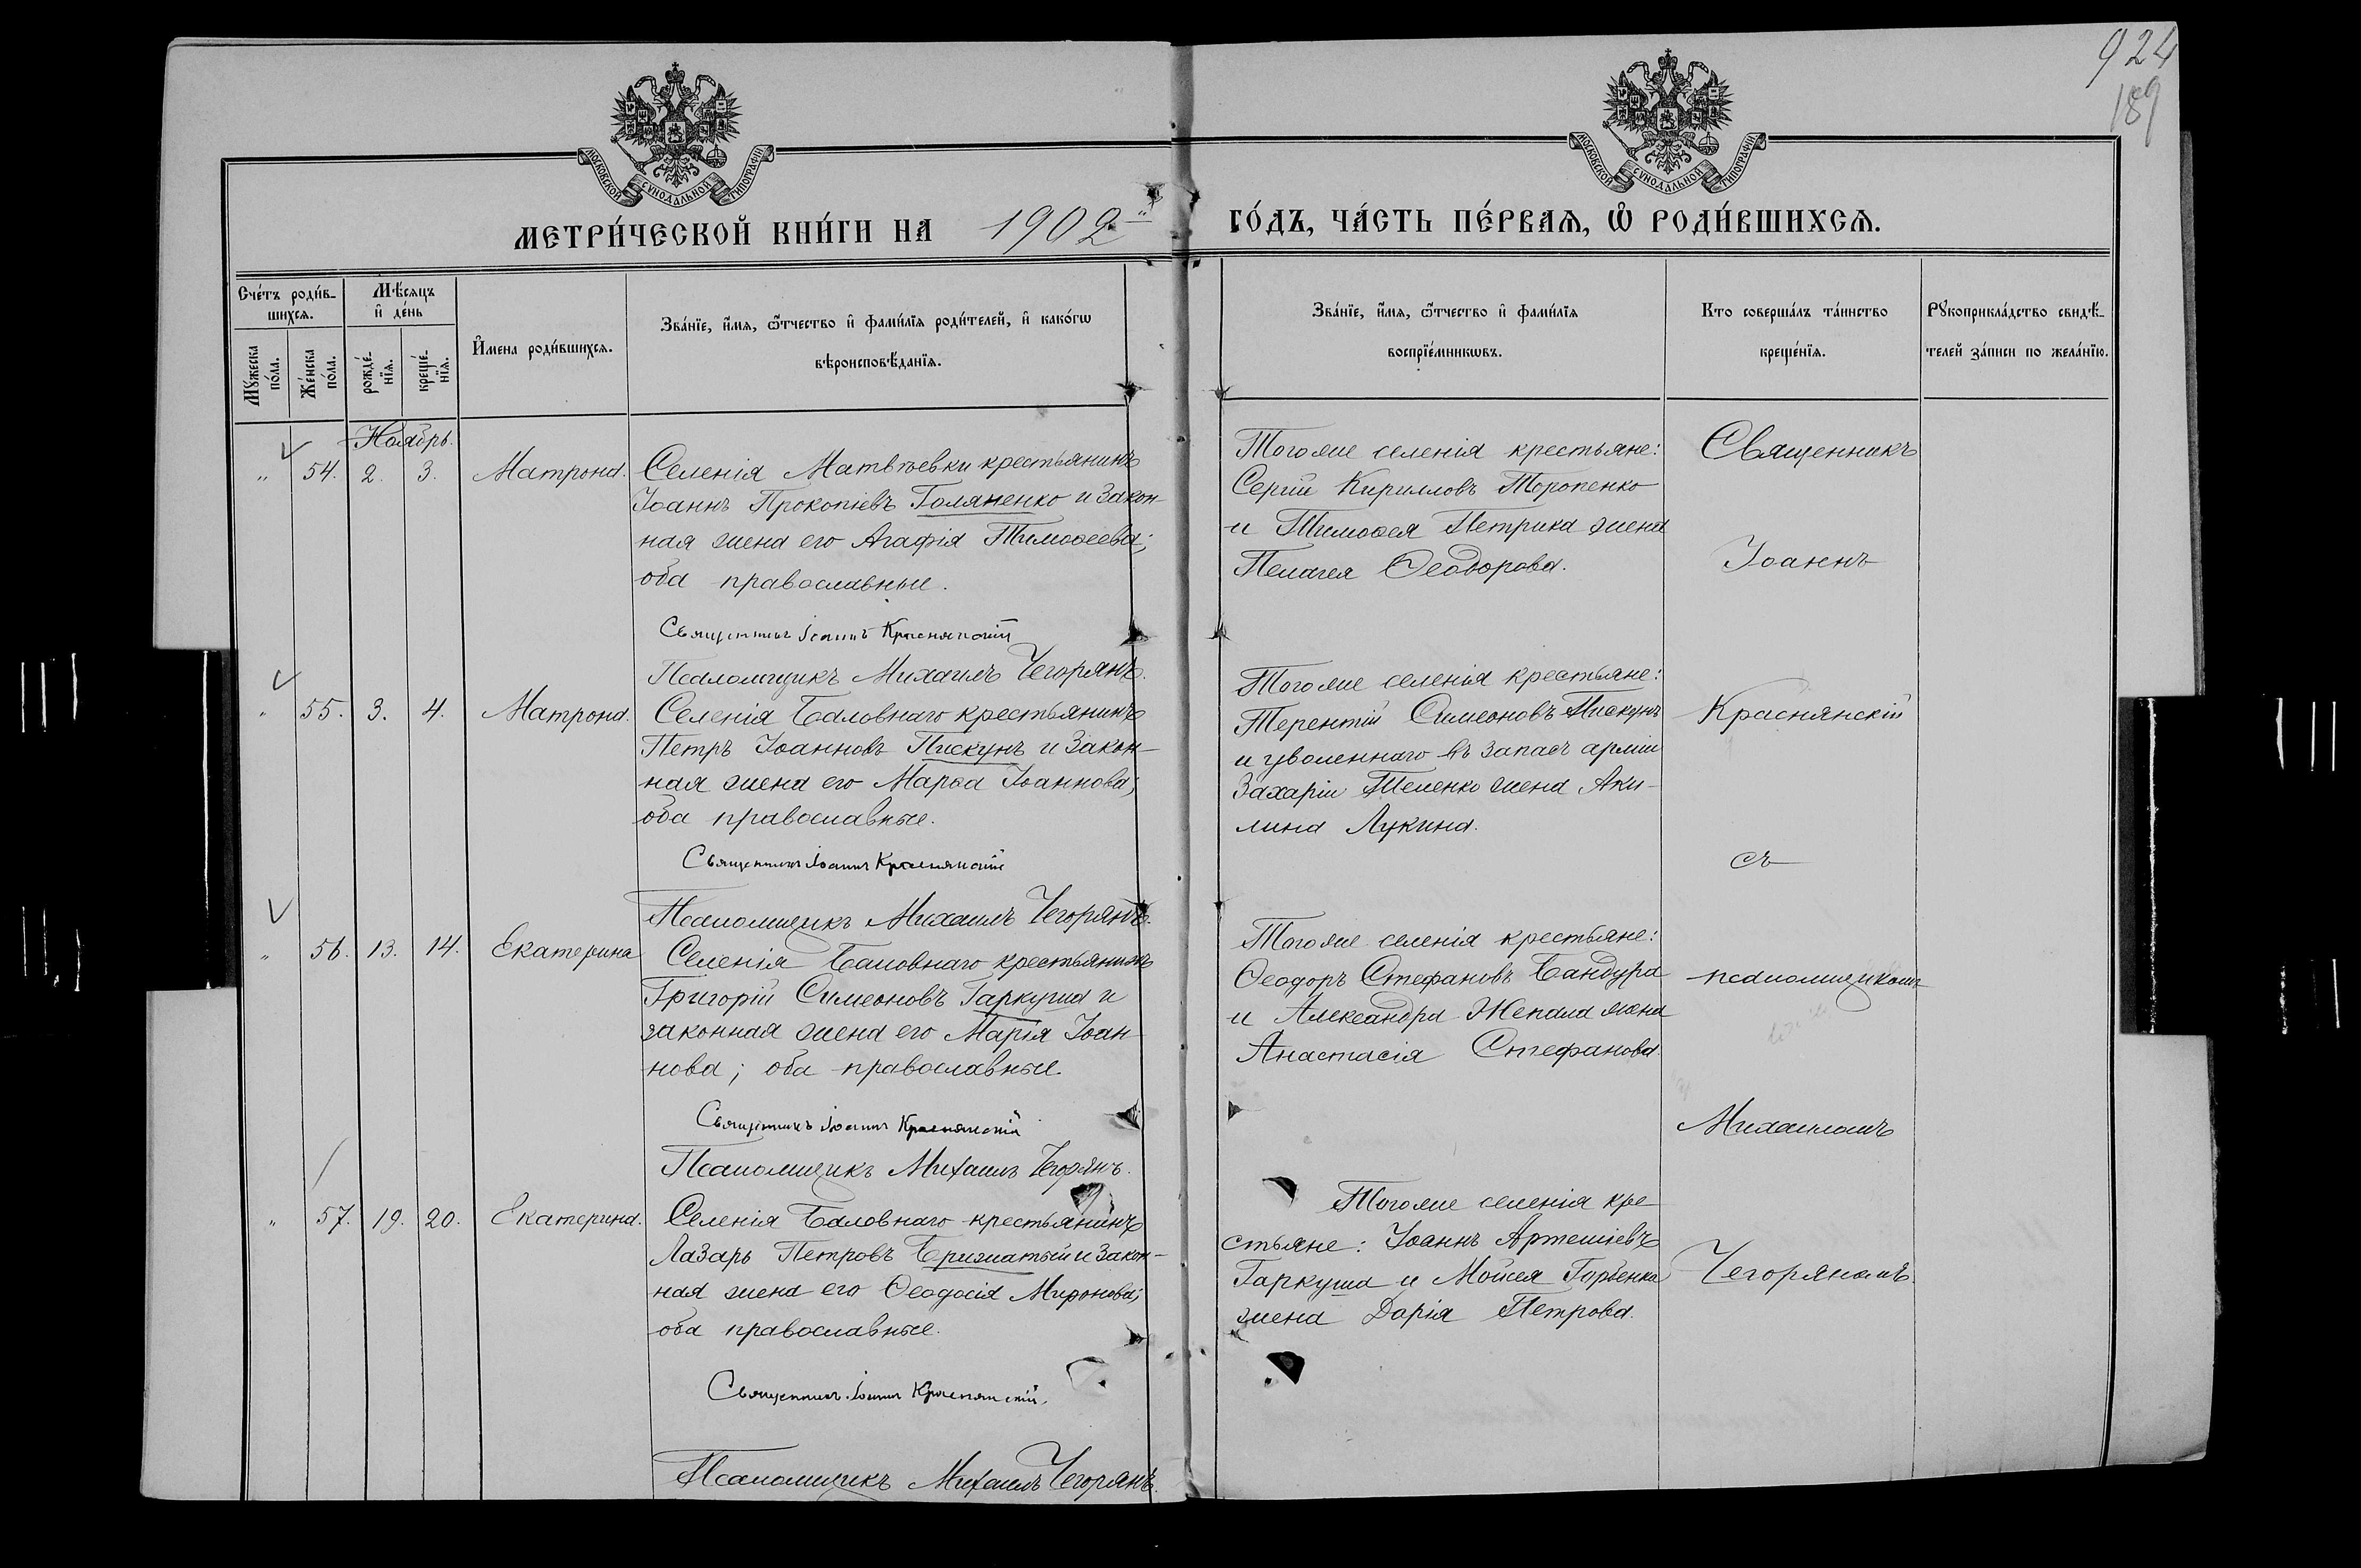 924
189
МОСКОВСКОЙ СѴНОДАЛЬНОЙ ТИПОГРАФІИ
МОСКОВСКОЙ СѴНОДАЛЬНОЙ ТИПОГРАФІИ
МЕТРИ́ЧЕСКОЙ КНИ́ГИ НА 1902
ГО́ДЪ, ЧА́СТЬ ПЕ́РВАѦ, Ѽ РОДИ́ВШИХСѦ.
Сче́тъ роди́в-
шихсѧ.
Мꙋ́жеска по́ла.
Же́нска по́ла.
Мѣ́сѧцъ
и҆ де́нь
рожде́-
нїѧ.
креще́-
нїѧ.
И҆мена роди́вшихсѧ.
Зва́нїе, и҆́мѧ, ѻ҆́тчество и҆ фами́лїѧ роди́телей, и҆ како́гѡ
вѣроисповѣ́данїѧ.
Зва́нїе, и҆́мѧ, ѻ҆́тчество и҆ фами́лїѧ
воспрїе́мникѡвъ.
Кто соверша́лъ та́инство
креще́нїѧ.
Рꙋкоприкла́дство свидѣ́-
телей за́писи по жела́нїю.
Ноябрь.
„ 54. 2. 3. Матрона.
Селенія Матвѣевки крестьянинъ
Іоаннъ Прокопіевъ Голяненко и закон-
ная жена его Агафія Тимоѳеева;
оба православные.
Священникъ Іоаннъ Краснянскій
Псаломщикъ Михаилъ Чегорянъ.
Тогоже селенія крестьяне:
Сергій Кирилловъ Торопенко
и Тимоѳея Петрика жена
Пелагея Ѳеодорова.
Священникъ
Іоаннъ
„ 55. 3. 4. Матрона.
Селенія Баловнаго крестьянинъ
Петръ Іоанновъ Пискунъ и закон-
ная жена его Марѳа Іоаннова;
оба православные.
Священникъ Іоаннъ Краснянскій
Псаломщикъ Михаилъ Чегорянъ.
Тогоже селенія крестьяне:
Терентій Симеоновъ Пискунъ
и уволеннаго въ запасъ арміи
Захаріи Теленко жена Аки-
лина Лукина.
Краснянскій
съ
„ 56. 13. 14. Екатерина
Селенія Баловнаго крестьянинъ
Григорій Симеоновъ Гаркуша и
законная жена его Марія Іоан-
нова; оба православные.
Священникъ Іоаннъ Краснянскій
Псаломщикъ Михаилъ Чегорянъ.
Тогоже селенія крестьяне:
Ѳеодоръ Стефановъ Бандура
и Александра Жепала жена
Анастасія Стефанова.
псаломщикомъ
Михаиломъ
„ 57. 19. 20. Екатерина.
Селенія Баловнаго крестьянинъ
Лазарь Петровъ Брижатый и закон-
ная жена его Ѳеодосія Миронова;
оба православные.
Священникъ Іоаннъ Краснянскій.
Псаломщикъ Михаилъ Чегорянъ.
Тогоже селенія кре-
стьяне: Іоаннъ Артеміевъ
Гаркуша и Мойсея Горбенка
жена Дарія Петрова.
Чегоряномъ.